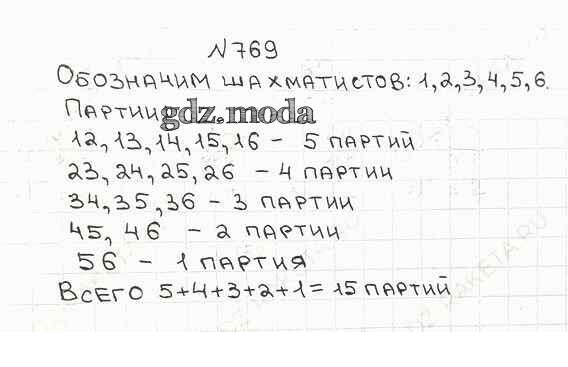 N769
Обозначим шахматистов: 1,2,3,4,5,6.
Партии gdz.moda
12, 13, 14, 15, 16 - 5 партий
23, 24, 25, 26 - 4 партии
34, 35, 36 - 3 партии
45, 46 - 2 партии
56 - 1 партия
Всего 5+4+3+2+1 = 15 партий